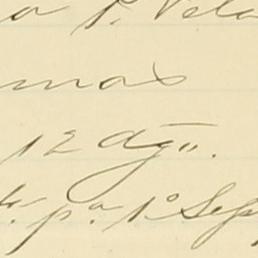 a P. Vela
mas
12 dg".
pª 1º Sep